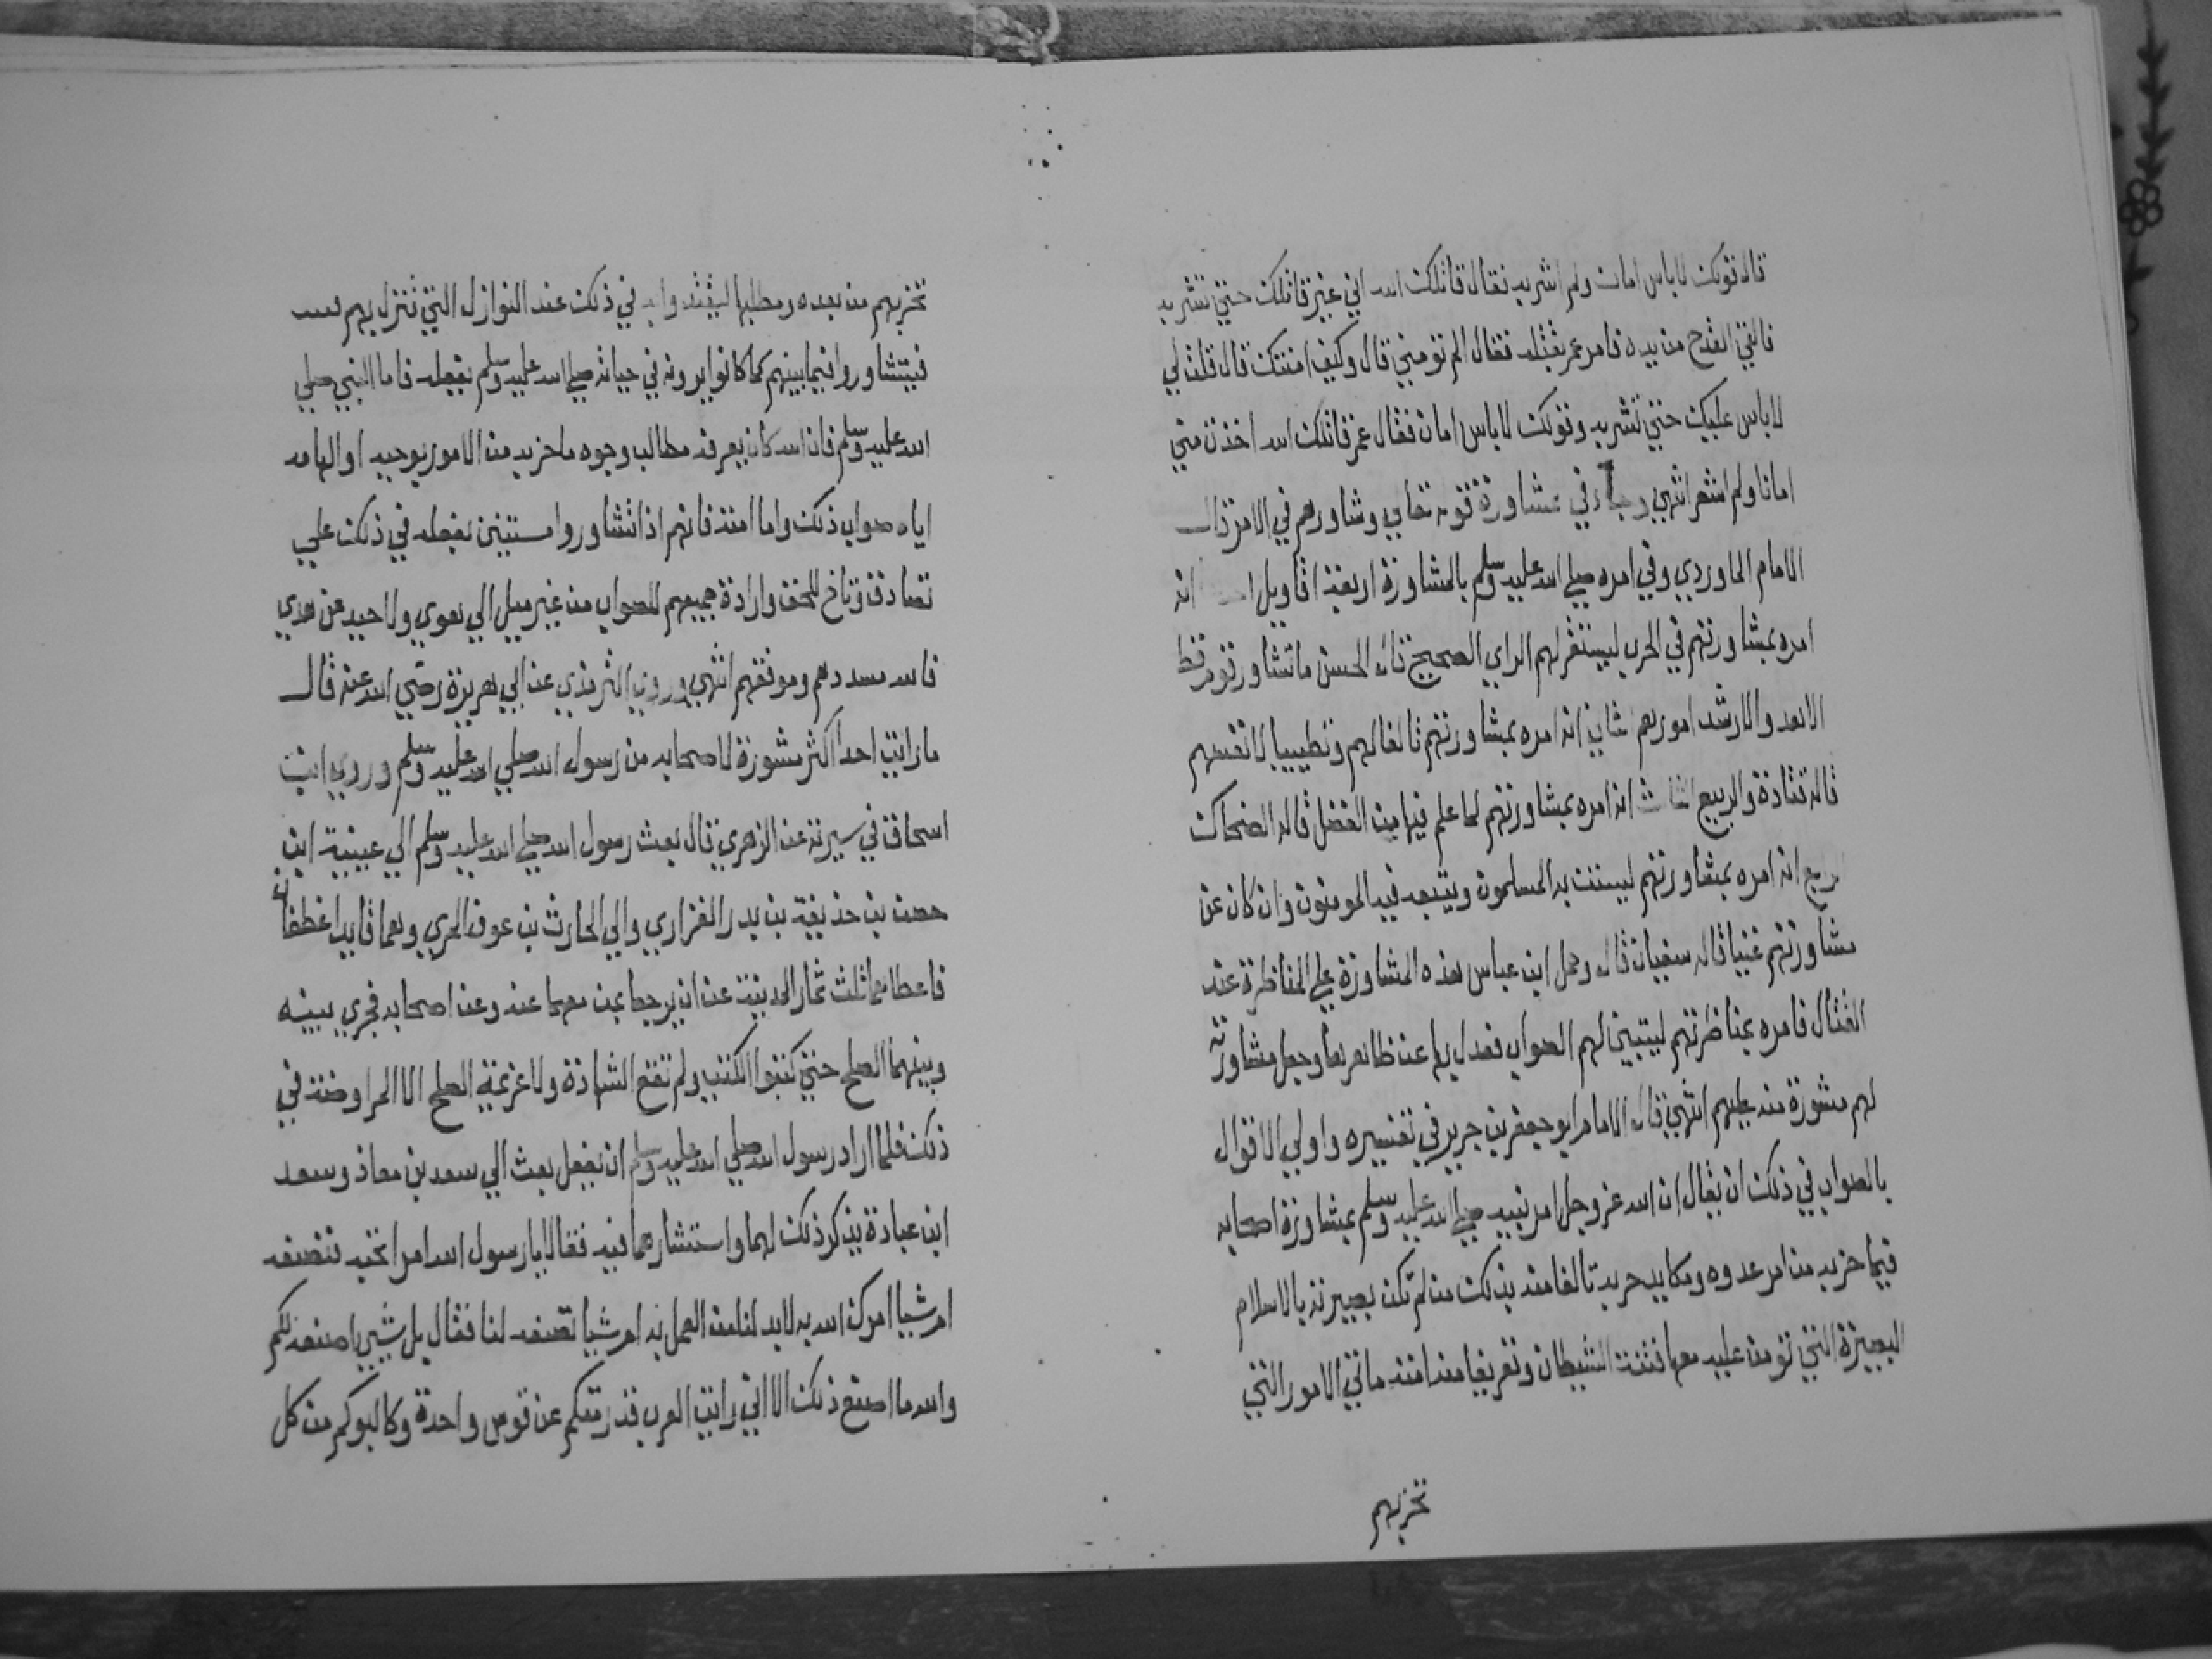 قال قولك لاباس امان ولم اشربه فقال قاتلك الله اني غير قاتلك حتي تشربه
فالقي القدح من يده فامر عمر بقتله فقال الم تومني قال وكيف امنتك قال قلت لي
لاباس عليك حتي تشربه وقولك لاباس امان فقال عمر قاتلك الله اخذت مني
امانا ولم اشعر انتهي وجاء في مشاورة قوله تعالي وشاورهم في الامر قال
الامام الماوردي وفي امره صلي الله عليه وسلم بالمشاورة اربعة اقاويل انه
امره بمشاورتهم في الحرب ليستقر لهم الراي الصحيح قال الحسن ما تشاور قوم قط
الا هدو الارشد امورهم ثانيه انه امره بمشاورتهم تالفا لهم وتطييبا لانفسهم
قاله قتادة والربيع الثالث انه امره بمشاورتهم لما علم فيها من الفضل قاله الضحاك
الرابع انه امره بمشاورتهم ليستن به المسلمون ويتبعه فيه المومنون وان كان عن
مشاورتهم غنيا قاله سفيان قال وحمل ابن عباس هذه المشاورة علي المناظرة عند
القتال فامره بمناظرتهم ليتبين لهم الصواب فعدل بها عن ظاهرها وجعل مشاورته
لهم مشورة منه عليهم انتهي قال الامام ابو جعفر بن جرير في تفسيره واولي الاقوال
بالصواب في ذلك ان يقال ان الله عز وجل امر نبيه صلي الله عليه وسلم بمشاورة اصحابه
فيما حزبه من امر عدوه ومكايد حربه تالفا منه بذلك من لم تكن بصيرته بالاسلام
البصيرة التي تومن عليه معها فتنة الشيطان وتعريفا منه امته ماتي الامور التي
تحزبهم
تحزبهم من بعده ومطلبها ليقتدوا به في ذلك عند النوازل التي تنزل بهم
فيتشاوروا فيما بينهم كما كانوا يرونه في حياته صلي الله عليه وسلم يفعله فاما النبي صلي
الله عليه وسلم فان الله كان يعرفه مطالب وجوه ما حزبه من الامور بوحيه او الهامه
اياه صواب ذلك واما امته فانهم اذا تشاوروا مستنين بفعله في ذلك علي
تصادق وتاخ للحق وارادة جميعهم للصواب من غير ميل الي هوي ولا حيد عن هدي
فالله مسددهم وموفقهم انتهي وروي الترمذي عن ابي هريرة رضي الله عنه قال
ما رايت احدا اكثر مشورة لاصحابه من رسول الله صلي الله عليه وسلم وروي ابن
اسحاق في سيرته عن الزهري قال بعث رسول الله صلي الله عليه وسلم الي عيينة ابن
حصن بن حذيفة بن بدر الفزاري والي الحارث بن عوف المري وهما قايدا غطفان
فاعطاهما ثلث ثمار المدينة عن ان يرجعا بمن معهما عنه وعن اصحابه فجري بينه
وبينهما الصلح حتي كتبوا الكتب ولم تقع الشهادة ولا عزيمة الصلح الا المراوضة في
ذلك فلما اراد رسول الله صلي الله عليه وسلم ان يفعل بعث الي سعد بن معاذ وسعد
ابن عبادة يذكر ذلك لهما واستشارهما فيه فقالا يا رسول الله امرا تحبه فتصنعه
ام شيا امرك الله به لابد لنا من العمل به ام شيا تصنعه لنا فقال بل شيي اصنعه لكم
والله ما اصنع ذلك الا اني رايت العرب قد رمتكم عن قوس واحدة وكالبوكم من كل